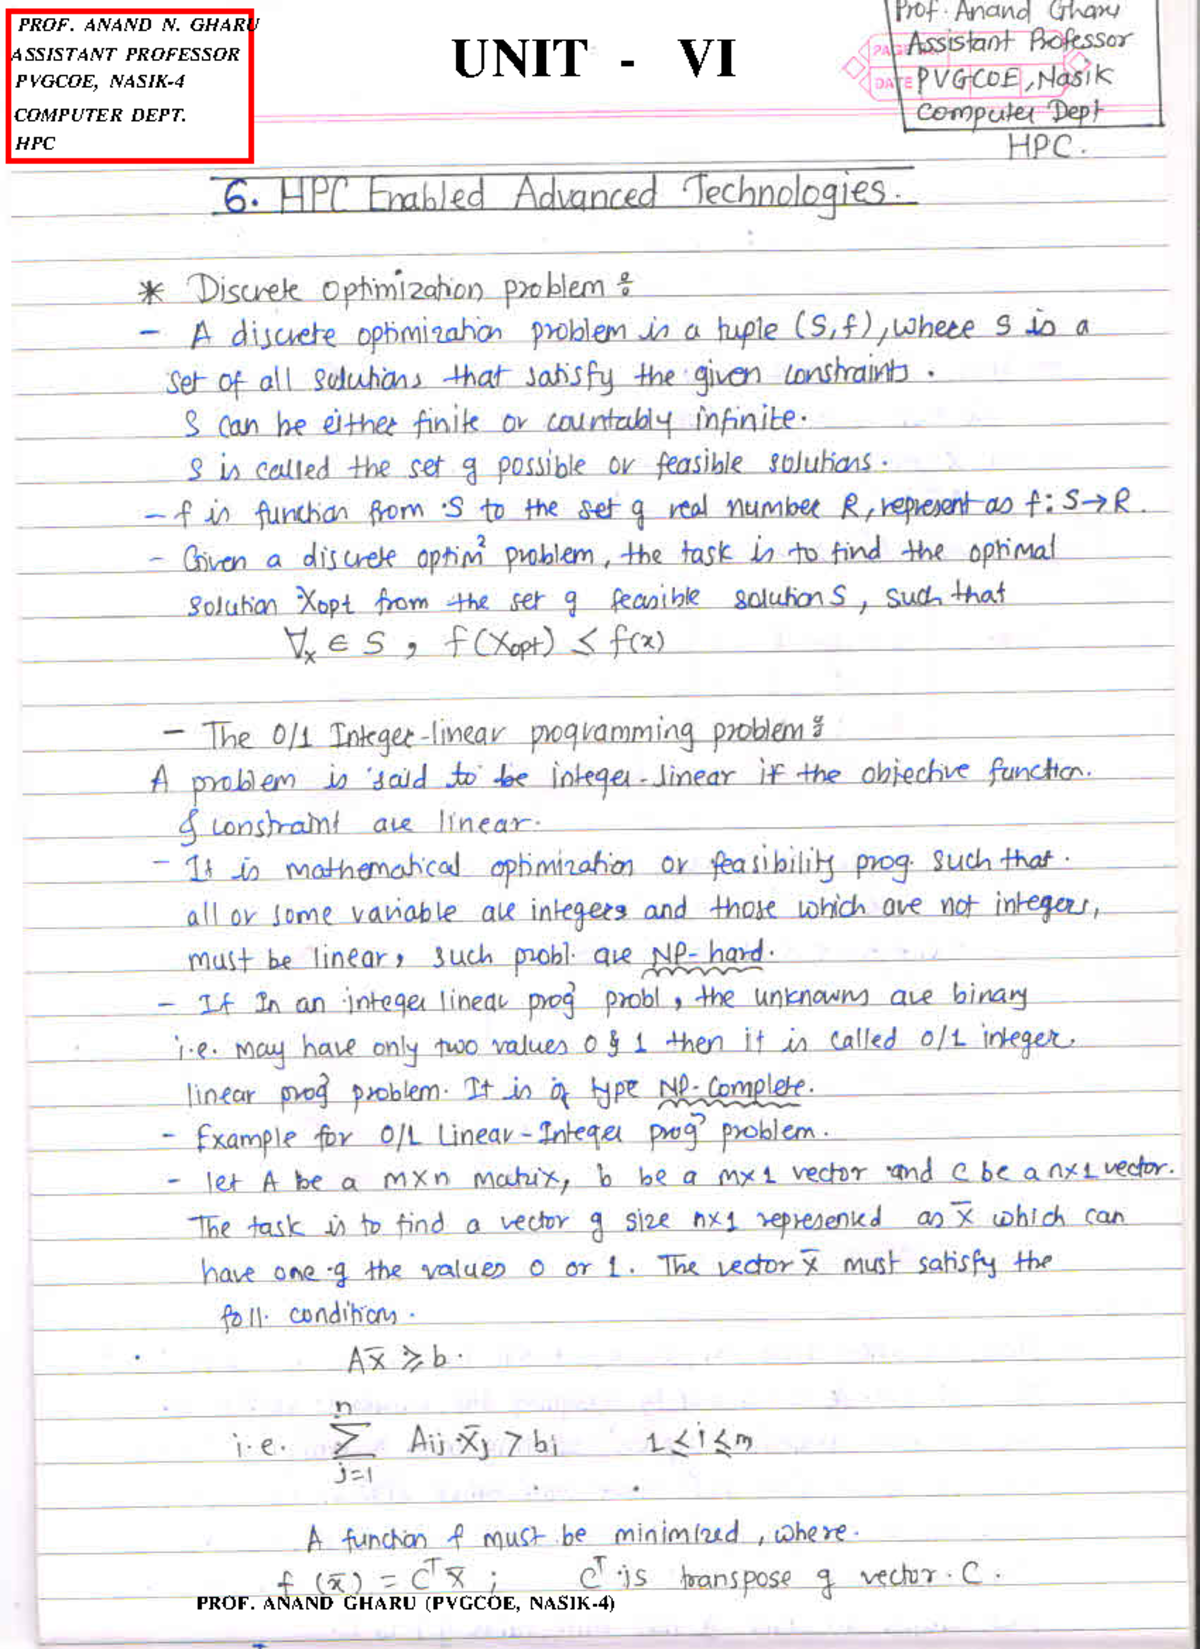 PROF. ANAND N. GHARU
ASSISTANT PROFESSOR
PVGCOE, NASIK-4
COMPUTER DEPT.
HPC
UNIT - VI
Prof. Anand Gharu
Assistant Professor
PVGCOE, Nasik
Computer Dept
HPC.
PAGE
DATE
6. HPC Enabled Advanced Technologies.
* Discrete Optimization problem :
- A discrete optimization problem is a tuple (S,f), where S is a
set of all solutions that satisfy the given constraints.
S can be either finite or countably infinite.
S is called the set of possible or feasible solutions.
- f is function from S to the set of real number R, represent as f: S→R.
- Given a discrete optimⁿ problem, the task is to find the optimal
solution Xopt from the set of feasible solution S, such that
∀x ∈ S , f(Xopt) ≤ f(x)
- The 0/1 Integer-linear programming problem :
A problem is said to be integer-linear if the objective function.
& constraint are linear.
- It is mathematical optimization or feasibility prog. such that.
all or some variable are integers and those which are not integers,
must be linear, such probl. are NP-hard.
- If In an integer linear progⁿ probl, the unknowns are binary
i.e. may have only two values 0 & 1 then it is called 0/1 integer.
linear progⁿ problem. It is of type NP-Complete.
- Example for 0/1 Linear-Integer progⁿ problem.
- let A be a m×n matrix, b be a m×1 vector and C be a n×1 vector.
The task is to find a vector of size n×1 represented as x̄ which can
have one of the values 0 or 1. The vector x̄ must satisfy the
foll. conditions.
Ax̄ ≥ b.
i.e. n∑j=1 Aij.x̄j > bi 1 ≤ i ≤ m
A function f must be minimized, where.
f (x̄) = Cᵀ x̄ ; Cᵀ is transpose of vector. C.
PROF. ANAND GHARU (PVGCOE, NASIK-4)